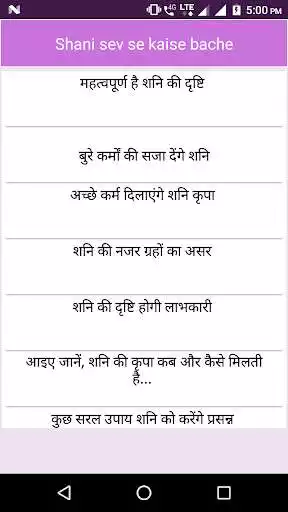 4G LTE 5:00 PM
Shani sev se kaise bache
महत्वपूर्ण है शनि की दृष्टि
बुरे कर्मों की सजा देंगे शनि
अच्छे कर्म दिलाएंगे शनि कृपा
शनि की नजर ग्रहों का असर
शनि की दृष्टि होगी लाभकारी
आइए जानें, शनि की कृपा कब और कैसे मिलती
है...
कुछ सरल उपाय शनि को करेंगे प्रसन्न